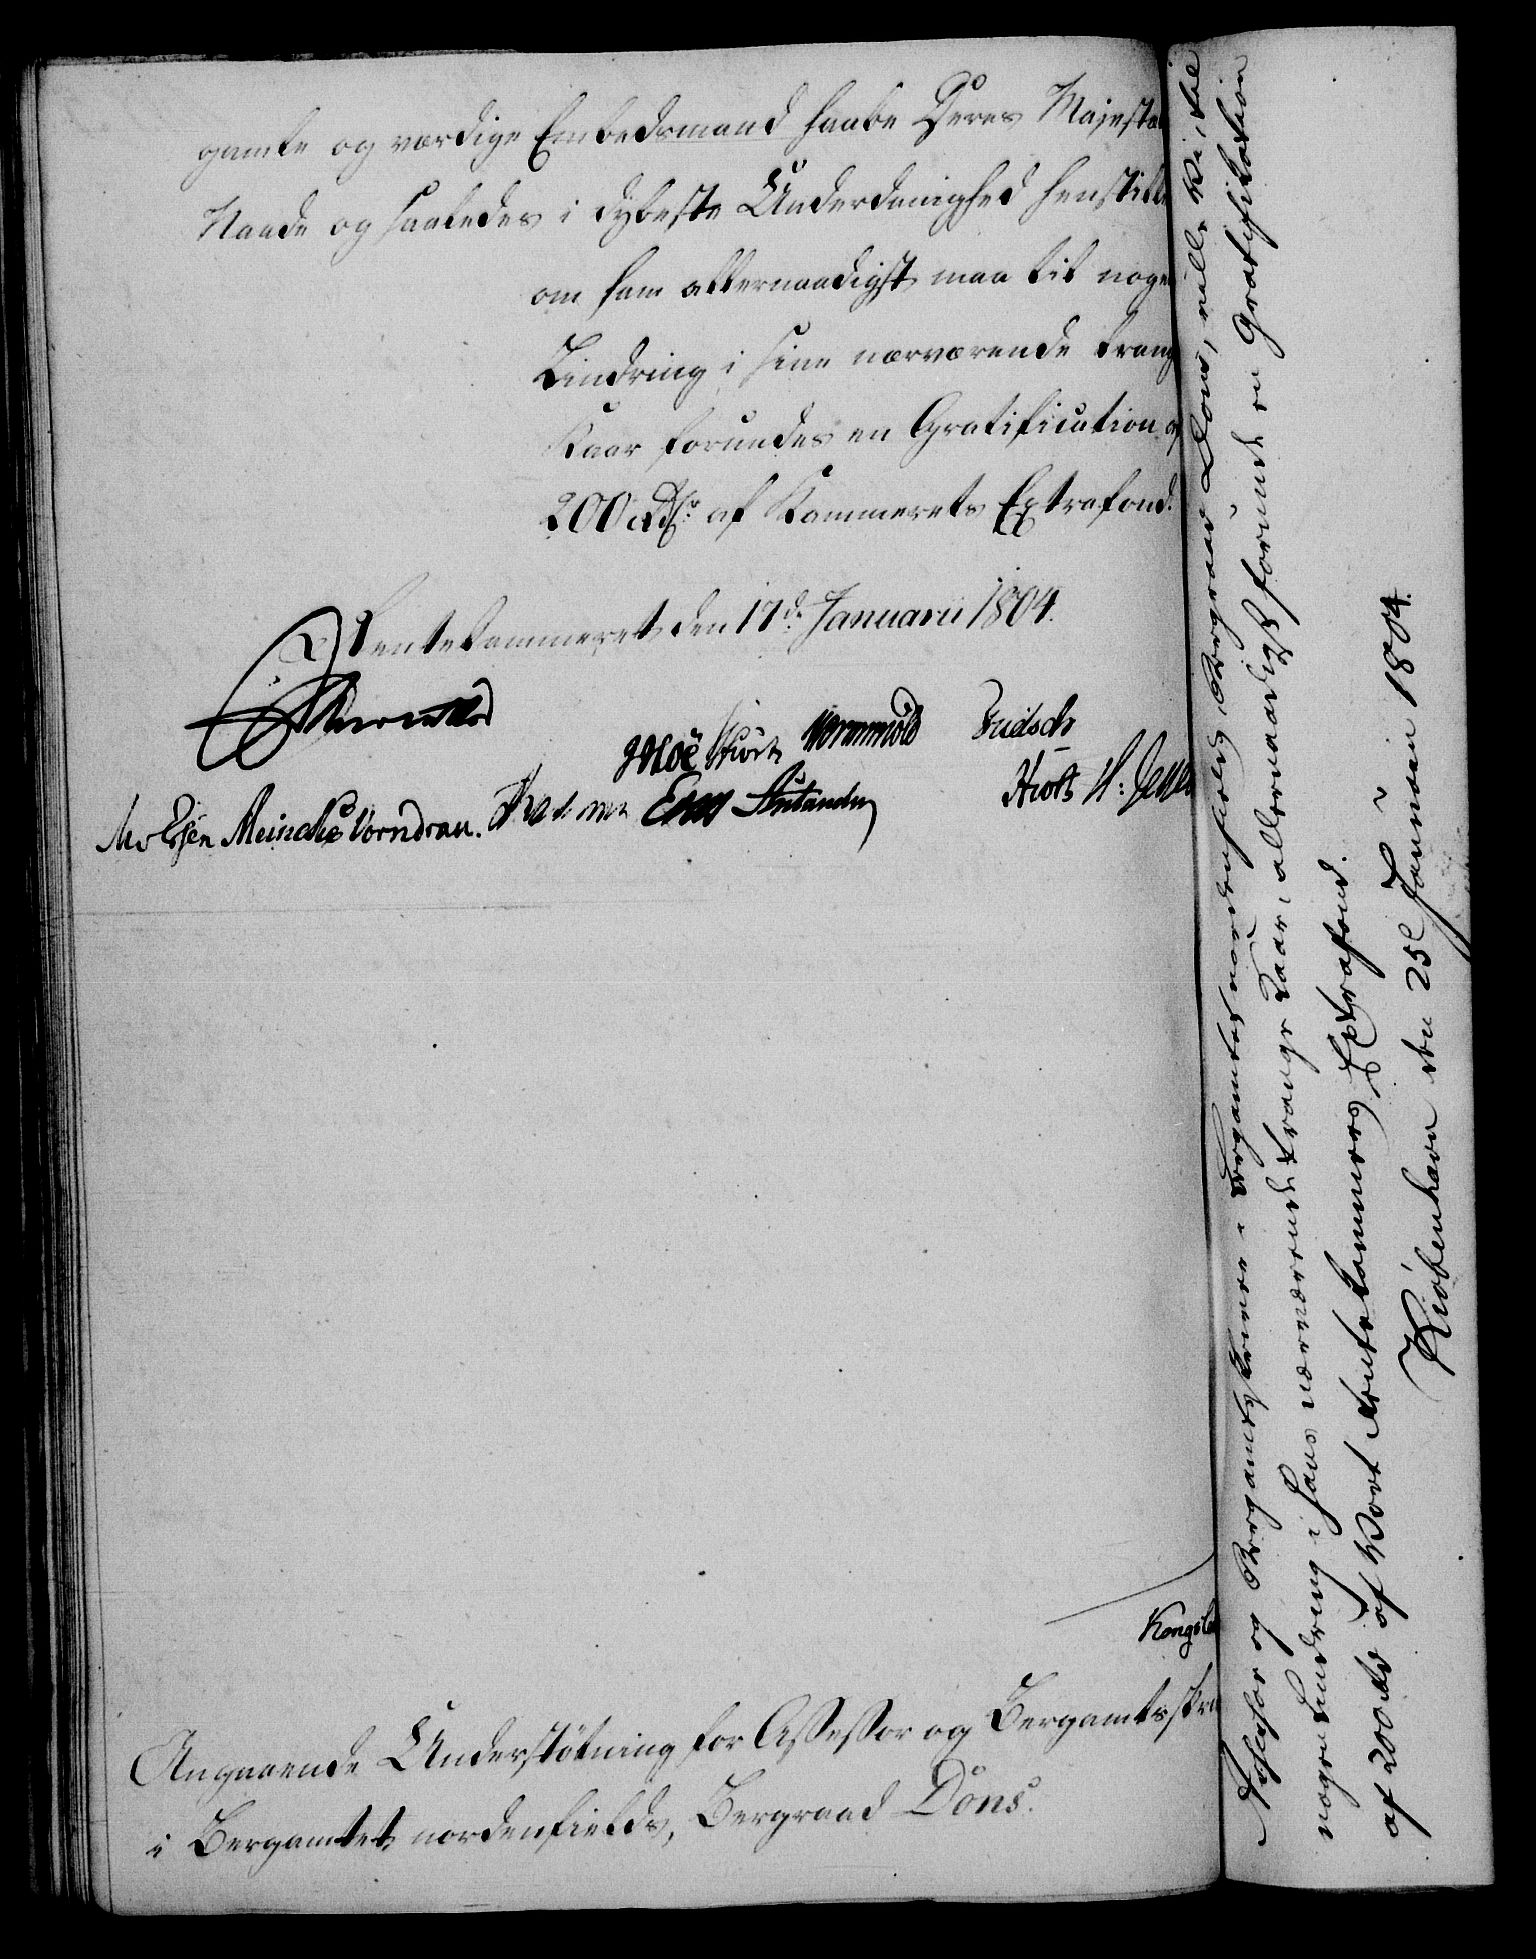 gamle og værdige Embedsmand haabe Deres Majestæ
Naade og saaledes i dybeste Underdanighed henstille
om ham allernaadigst maa til nogen
Lindring i sine nærværende trang
Kaar forundes en Gratification af
200 Rdr. af Kammerets Extrafond.
Rentekammeret den 17d. Januarii 1804.
Moë Wormskiold
Meinche Vorndran.
Hiort H:
Kongsb
Angaaende Understøtning for Assessor og Bergamtsskri
i Bergamtet nordenfields, Bergraad Döns.
Assessor og Bergamtsskriver i Bergamtet nordenfields, Bergraad Döns, ville Vi til
nogen Lindring i hans nærværende trange Kaar, allernaadigst forunde en Gratification
af 200 Rd af Vort Rentekammers Extrafond.
Kiöbenhavn den 25 Januarii 1804.